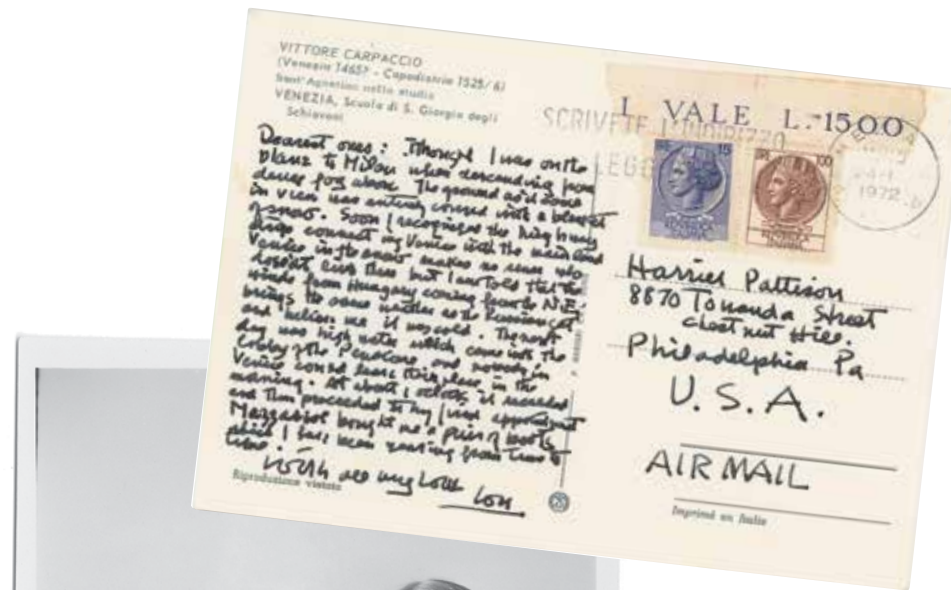 VITTORE CARPACCIO
(Venezia 1465? - Capodistria 1525/6)
Sant'Agostino nello studio
VENEZIA, Scuola di S. Giorgio degli
Schiavoni
Dearest ones: I thought I was on the
plane to Milan when descending from
dense fog above. The ground as it came
in view was entirely covered with a blanket
of snow. Soon I recognized the long
connecting Venice with the mainland
Venice in the snow makes no sense who
lives there but I am told that the
winds from Hungary coming from the N.E.
brings the same weather as the Russian
and believe me it was cold. The next
day was high water which came into the
lobby of the and nobody in
Venice could leave their place in the
morning. At about 1 o'clock it receded
and then proceeded to my appointment
Mazzariol bought me a pair of boots
which I have been wearing from time to
time.
With all my love Lou
Riproduzione vietata
SCRIVETE L'INDIRIZZO
LEGG
I VALE L. 1500
LIRE 15
LIRE 100
1972
Harriet Pattison
8870 Towanda Street
Chestnut Hill.
Philadelphia Pa
U.S.A.
AIR MAIL
Imprimé en Italie